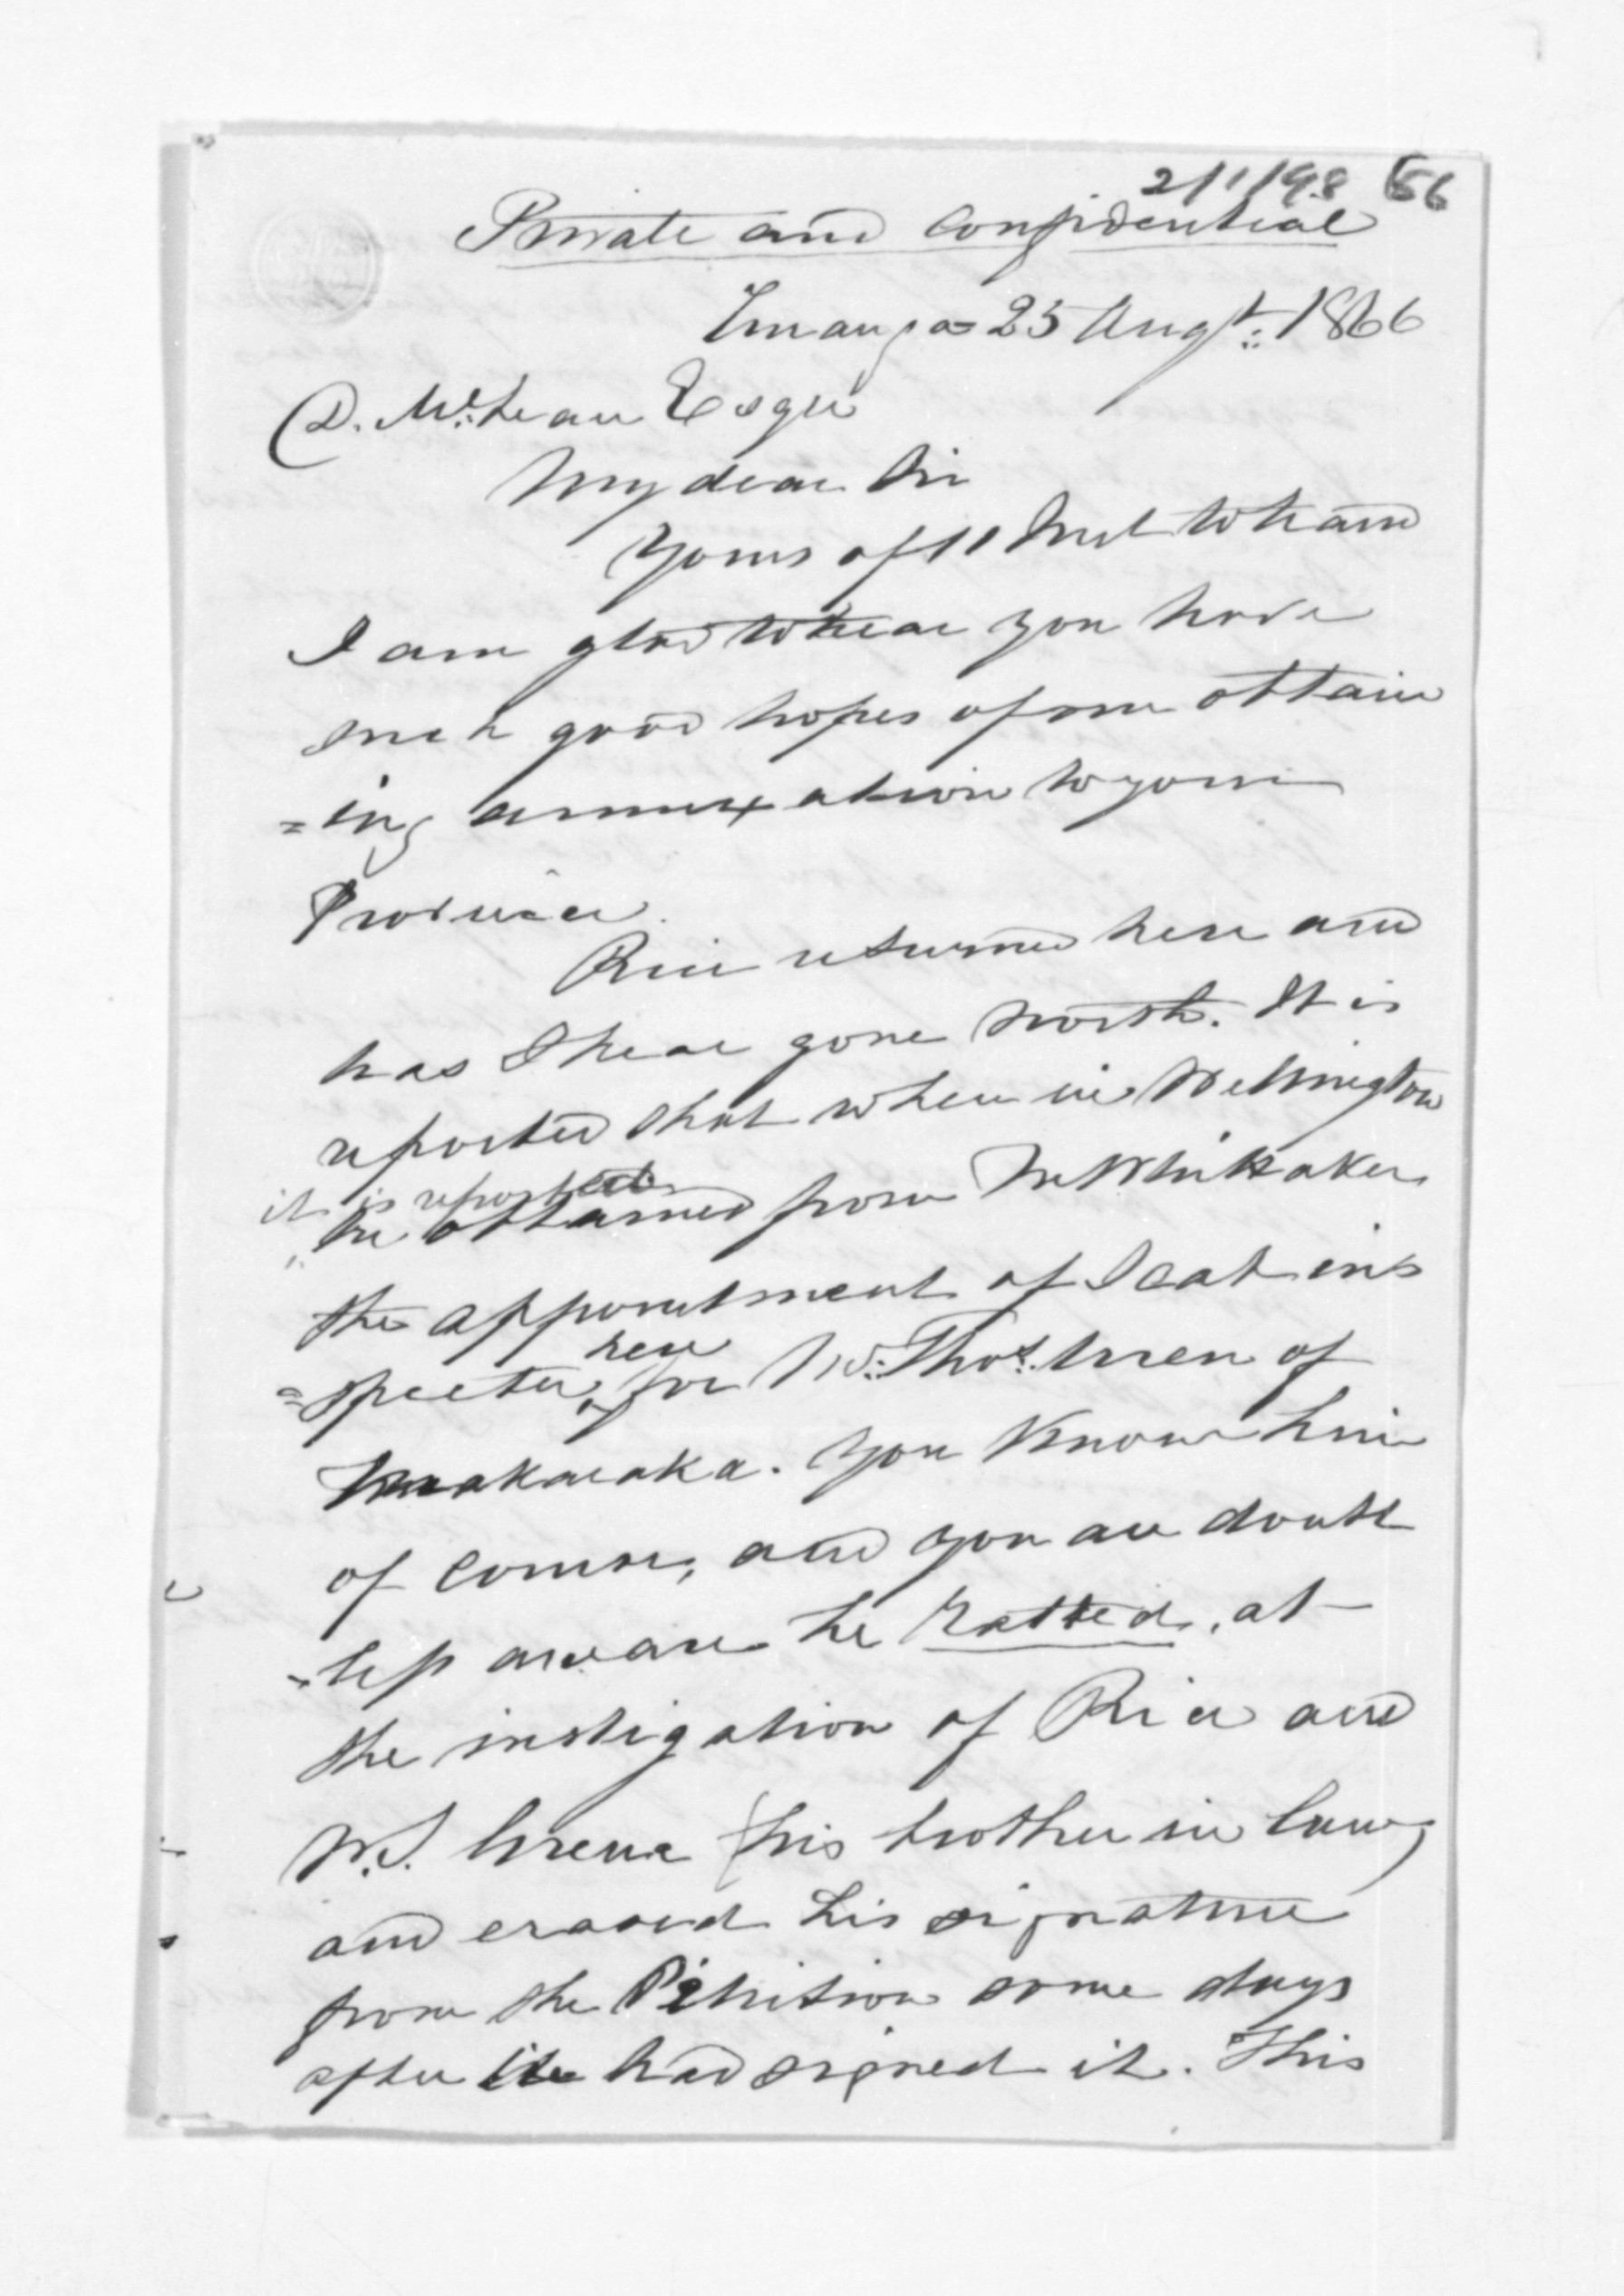 2/1/98 66
Private and Confidential
Turanga 25 Augt. 1866
D. McLean Esqre
My dear Sir
Yours of 11 Inst to hand
I am glad to hear you have
such good hopes of our obtain
=ing annexation to your
Province.
Rice returned here and
has I hear gone north. It is
reported that when in Wellington
it is reported
he obtained from Mr Whittaker
the appointment of Scab ins
=pector, here for Mr. Thos. Uren of
Makaraka. You know him
of course, and you are doubt
-less aware he ratted, at
the instigation of Rice and
W.S. Greene (his brother in law)
and erased his signature
from the Petition some days
after he had signed it. This